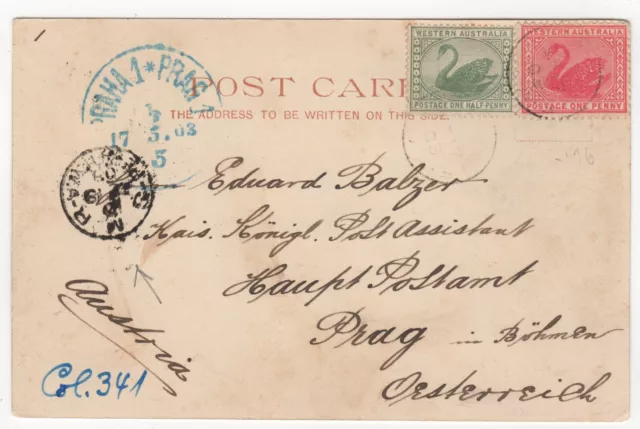 WESTERN AUSTRALIA
POSTAGE ONE HALF-PENNY
WESTERN AUSTRALIA
POSTAGE ONE PENNY
POST CARD
THE ADDRESS TO BE WRITTEN ON THIS SIDE.
PRAHA 1 * PRAG 1
17 5.03
Eduard Balzer
Kais. Königl. Post Assistant
Haupt Postamt
Prag in Böhmen
Oesterreich
Austria
Col. 341